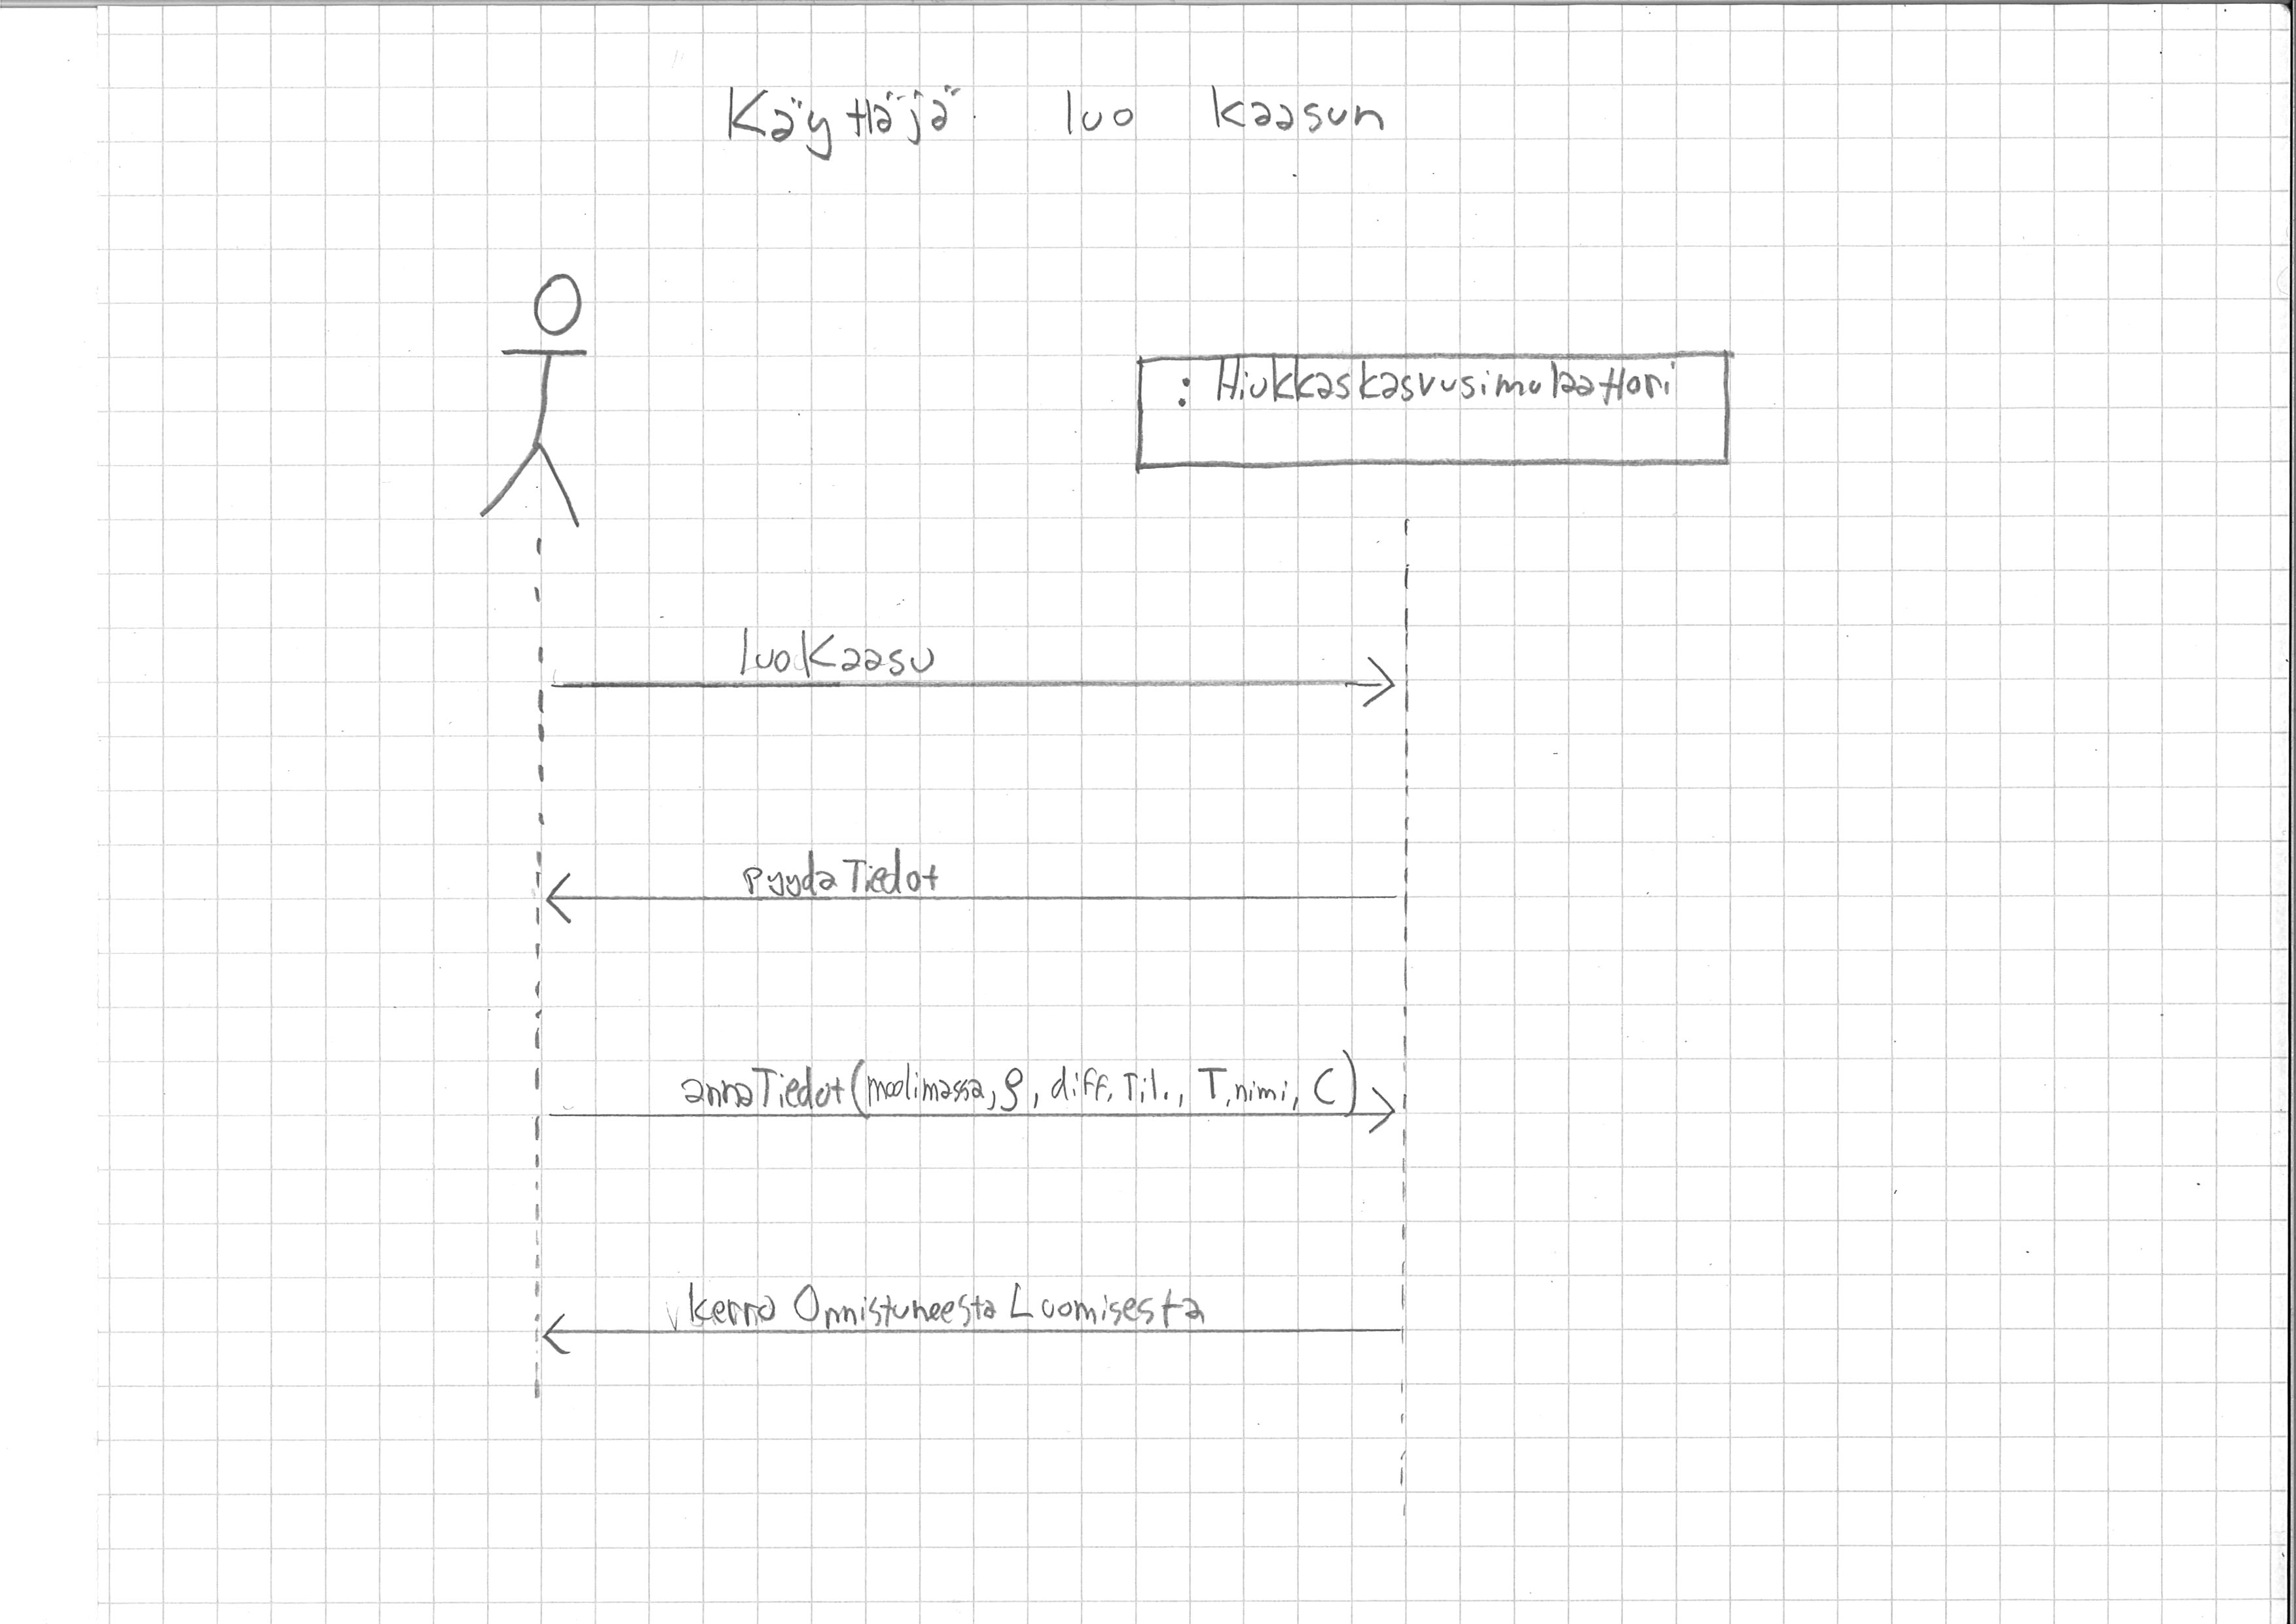 Käyttäjä luo kaasun
: Hiukkaskasvusimulaattori
luoKaasu
pyydaTiedot
annaTiedot(moolimassa, ρ, diff.til., T, nimi, C)
kerro Onnistuneesta Luomisesta